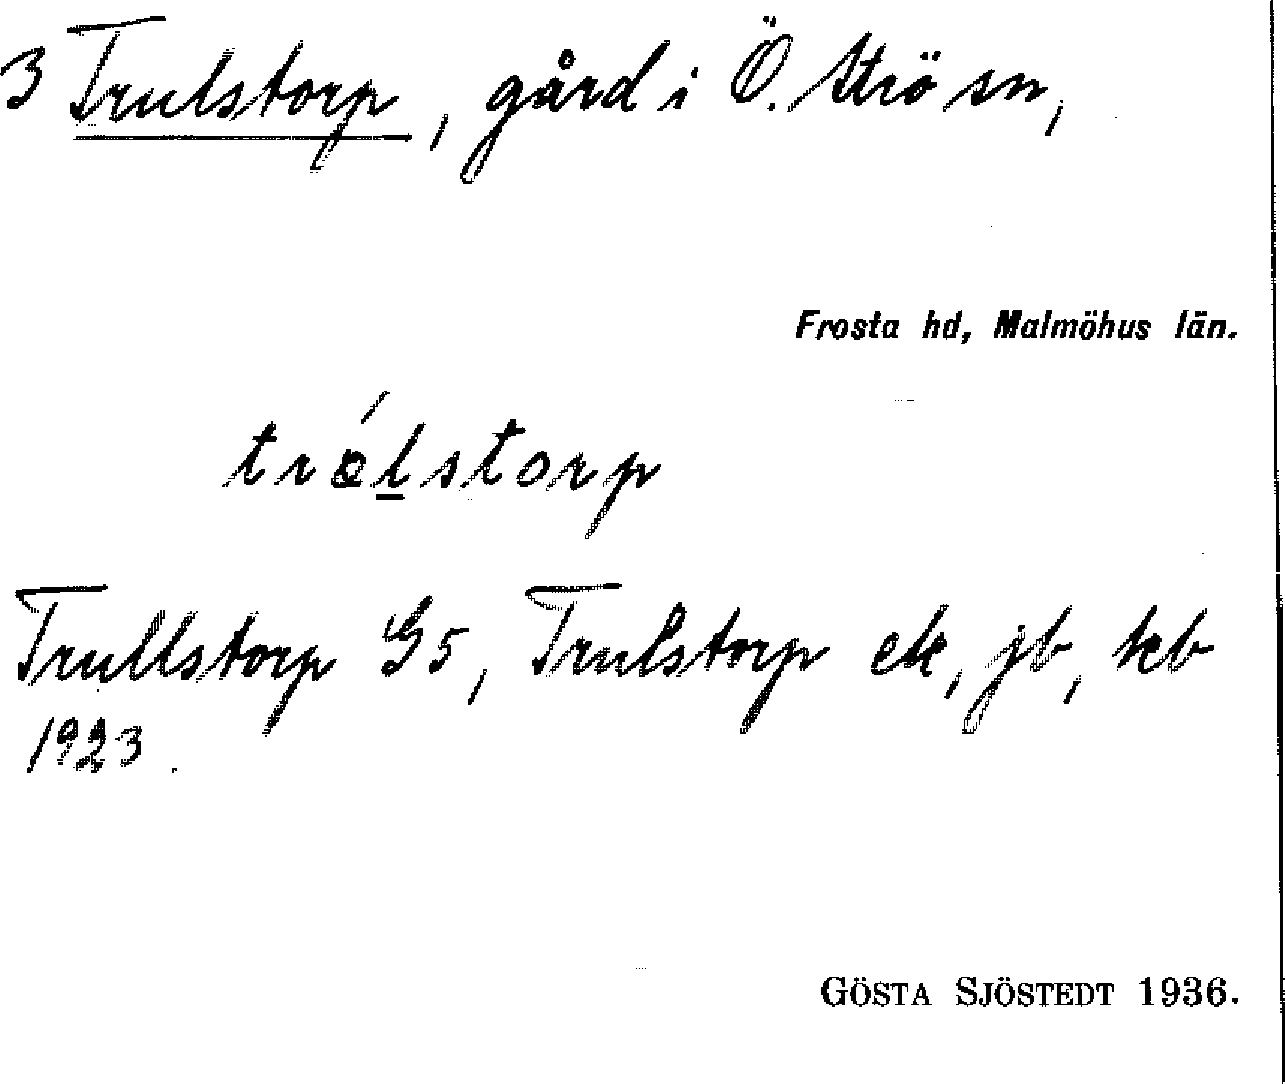 3 Trulstorp, gård i Ö. Strö sn,
Frosta hd, Malmöhus län.
trálstorp
Trullstorp G5, Trulstorp ek, jb, kb
1923.
GÖSTA SJÖSTEDT 1936.